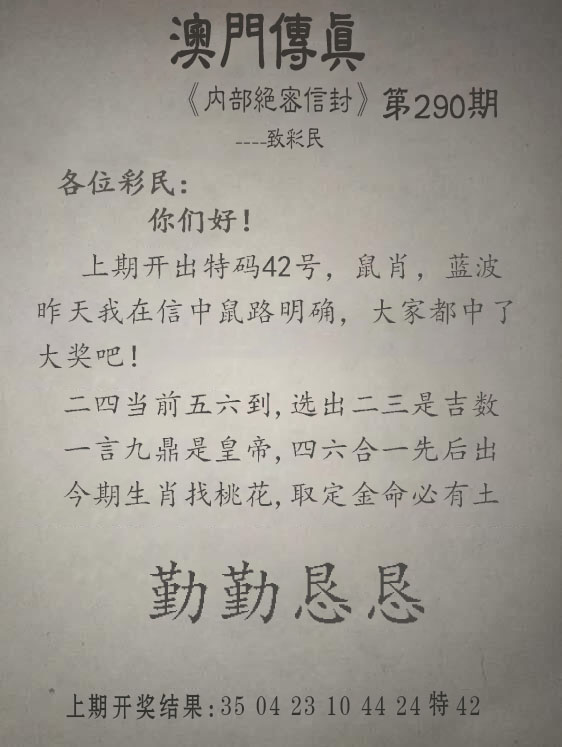 澳門傳真
《内部絕密信封》第290期
----致彩民
各位彩民:
你们好!
上期开出特码42号，鼠肖，蓝波
昨天我在信中鼠路明确，大家都中了
大奖吧!
二四当前五六到,选出二三是吉数
一言九鼎是皇帝,四六合一先后出
今期生肖找桃花,取定金命必有土
勤勤恳恳
上期开奖结果:35 04 23 10 44 24 特 42